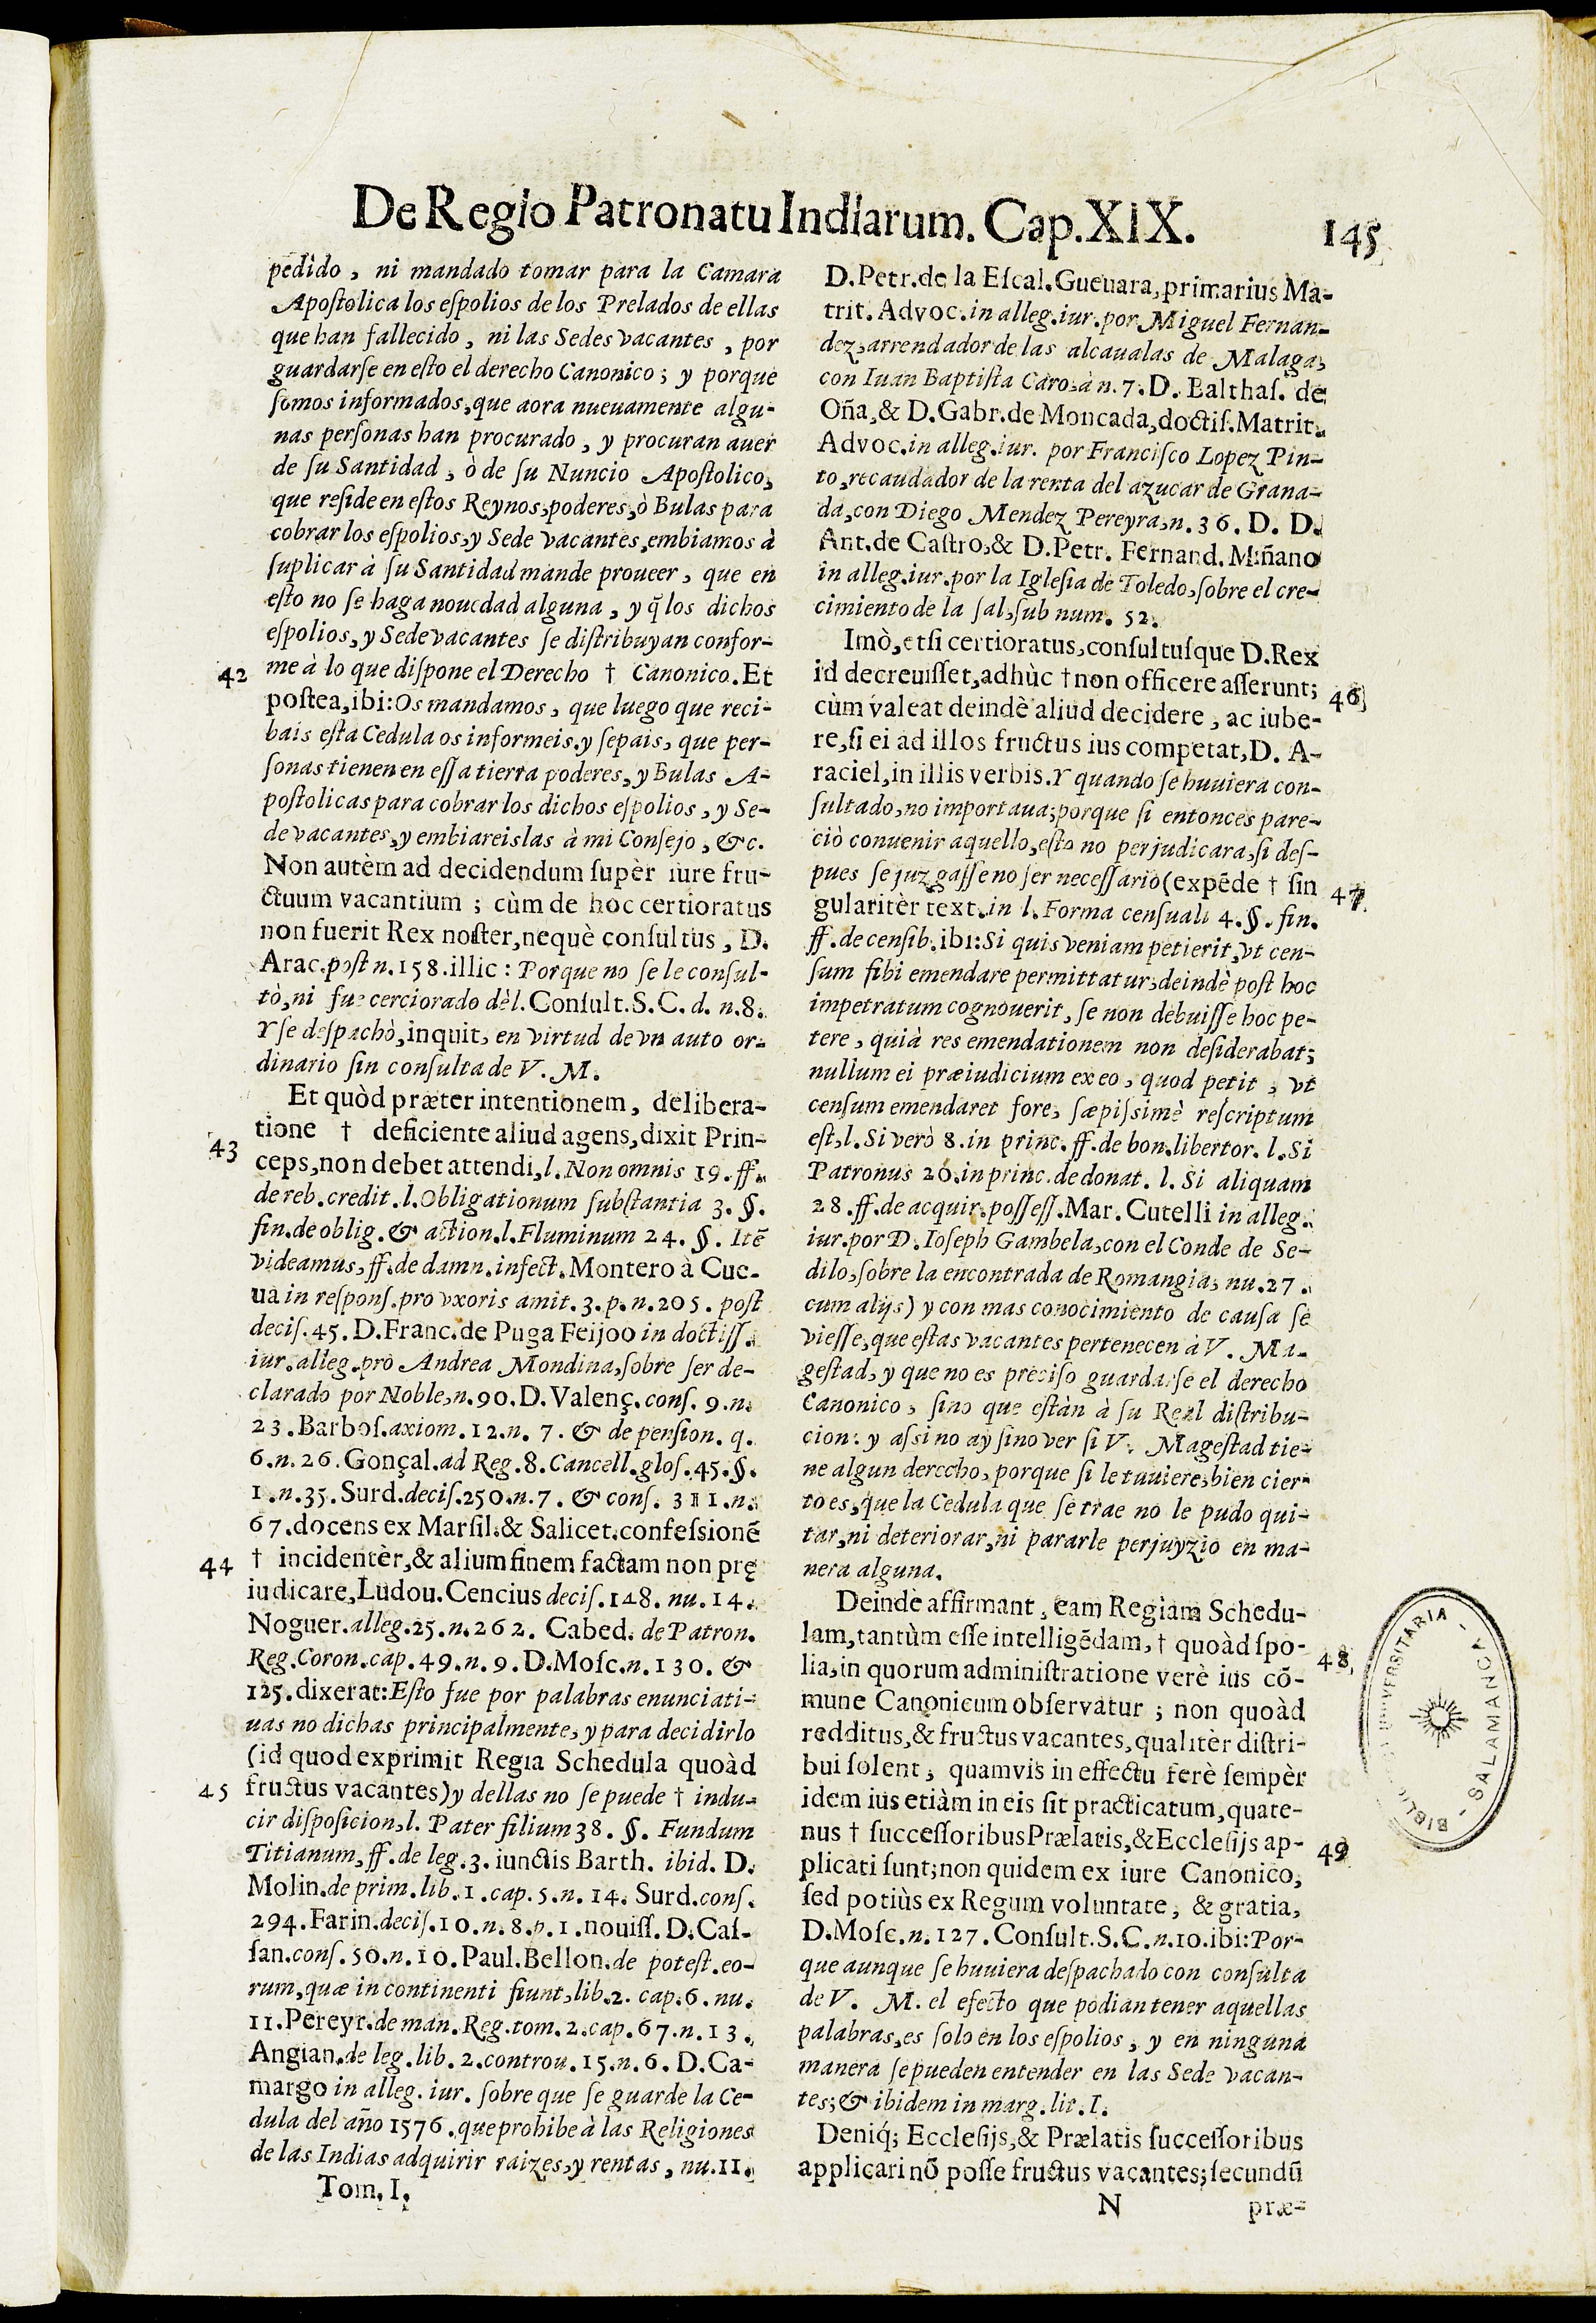 De Regio Patronatu Indiarum. Cap. XIX.
145
pedido, ni mandado tomar para la Camara
Apostolica los espolios de los Prelados de ellas
que han fallecido, ni las Sedes vacantes, por
guardarse en esto el derecho Canonico; y porque
somos informados, que aora nueuamente algu-
nas personas han procurado, y procuran auer
de su Santidad, ò de su Nuncio Apostolico,
que reside en estos Reynos, poderes, ò Bulas para
cobrar los espolios, y Sede vacantes, embiamos à
suplicar à su Santidad mande proueer, que en
esto no se haga nouedad alguna, y q̃ los dichos
espolios, y Sede vacantes se distribuyan confor-
42 me à lo que dispone el Derecho † Canonico. Et
postea, ibi: Os mandamos, que luego que reci-
bais esta Cedula os informeis, y sepais, que per-
sonas tienen en essa tierra poderes, y Bulas A-
postolicas para cobrar los dichos espolios, y Se-
de vacantes, y embiareislas à mi Consejo, &c.
Non autèm ad decidendum supèr iure fru-
ctuum vacantium; cùm de hoc certioratus
non fuerit Rex noster, nequè consultus, D.
Arac. post n. 158. illic: Porque no se le consul-
tò, ni fue cerciorado dèl. Consult. S. C. d. n. 8.
Y se despachò, inquit, en virtud de vn auto or-
dinario sin consulta de V. M.
Et quòd præter intentionem, delibera-
43 tione † deficiente aliud agens, dixit Prin-
ceps, non debet attendi, l. Non omnis 19. ff.
de reb. credit. l. Obligationum substantia 3. §.
fin. de oblig. & action. l. Fluminum 24. §. Itē
videamus, ff. de damn. infect. Montero à Cue-
ua in respons. pro vxoris amit. 3. p. n. 205. post
decis. 45. D. Franc. de Puga Feijoo in doctiss.
iur. alleg. pro Andrea Mondina, sobre ser de-
clarado por Noble, n. 90. D. Valenç. cons. 9. n.
23. Barbos. axiom. 12. n. 7. & de pension. q.
6. n. 26. Gonçal. ad Reg. 8. Cancell. glos. 45. §.
1. n. 35. Surd. decis. 250. n. 7. & cons. 311. n.
67. docens ex Marsil. & Salicet. confessionē
44 † incidentèr, & alium finem factam non prę
iudicare, Ludou. Cencius decis. 148. nu. 14.
Noguer. alleg. 25. n. 262. Cabed. de Patron.
Reg. Coron. cap. 49. n. 9. D. Mosc. n. 130. &
125. dixerat: Esto fue por palabras enunciati-
uas no dichas principalmente, y para decidirlo
(id quod exprimit Regia Schedula quoàd
45 fructus vacantes) y dellas no se puede † indu-
cir disposicion, l. Pater filium 38. §. Fundum
Titianum, ff. de leg. 3. iunctis Barth. ibid. D.
Molin. de prim. lib. 1. cap. 5. n. 14. Surd. cons.
294. Farin. decis. 10. n. 8. p. 1. nouiss. D. Cas-
san. cons. 50. n. 10. Paul. Bellon. de potest. eo-
rum, quæ in continenti fiunt, lib. 2. cap. 6. nu.
11. Pereyr. de man. Reg. tom. 2. cap. 67. n. 13.
Angian. de leg. lib. 2. controu. 15. n. 6. D. Ca-
margo in alleg. iur. sobre que se guarde la Ce-
dula del año 1576. que prohibe à las Religiones
de las Indias adquirir raizes, y rentas, nu. 11.
Tom. I.
D. Petr. de la Escal. Gueuara, primarius Ma-
trit. Advoc. in alleg. iur. por Miguel Fernan-
dez, arrendador de las alcaualas de Malaga,
con Iuan Baptista Caro, à n. 7. D. Balthas. de
Oña, & D. Gabr. de Moncada, doctis. Matrit.
Advoc. in alleg. iur. por Francisco Lopez Pin-
to, recaudador de la renta del azucar de Grana-
da, con Diego Mendez Pereyra, n. 36. D. D.
Ant. de Castro, & D. Petr. Fernand. Miñano
in alleg. iur. por la Iglesia de Toledo, sobre el cre-
cimiento de la sal, sub num. 52.
Imò, etsi certioratus, consultusque D. Rex
id decreuisset, adhùc † non officere asserunt; 46
cùm valeat deindè aliud decidere, ac iube-
re, si ei ad illos fructus ius competat, D. A-
raciel, in illis verbis. Y quando se huuiera con-
sultado, no importaua; porque si entonces pare-
ciò conuenir aquello, esto no perjudicara, si des-
pues se juzgasse no ser necessario (expēde † sin 47
gularitèr text. in l. Forma censuali 4. §. fin.
ff. de censib. ibi: Si quis veniam petierit, vt cen-
sum sibi emendare permittatur, deindè post hoc
impetratum cognouerit, se non debuisse hoc pe-
tere, quià res emendationem non desiderabat;
nullum ei præiudicium ex eo, quod petit, vt
censum emendaret fore, sæpissimè rescriptum
est, l. Si verò 8. in princ. ff. de bon. libertor. l. Si
Patronus 20. in princ. de donat. l. Si aliquam
28. ff. de acquir. possess. Mar. Cutelli in alleg.
iur. por D. Ioseph Gambela, con el Conde de Se-
dilo, sobre la encontrada de Romangia, nu. 27.
cum alijs) y con mas conocimiento de causa se
viesse, que estas vacantes pertenecen à V. Ma-
gestad, y que no es preciso guardarse el derecho
Canonico, sino que estàn à su Real distribu-
cion: y assi no ay sino ver si V. Magestad tie-
ne algun derecho, porque si le tuuiere, bien cier-
to es, que la Cedula que se trae no le pudo qui-
tar, ni deteriorar, ni pararle perjuyzio en ma-
nera alguna.
Deindè affirmant, eam Regiam Schedu-
lam, tantùm esse intelligēdam, † quoàd spo- 48
lia, in quorum administratione verè ius cō-
mune Canonicum observatur; non quoàd
redditus, & fructus vacantes, qualitèr distri-
bui solent, quamvis in effectu ferè sempèr
idem ius etiàm in eis sit practicatum, quate-
nus † successoribus Prælatis, & Ecclesijs ap- 49
plicati sunt; non quidem ex iure Canonico,
sed potiùs ex Regum voluntate, & gratia,
D. Mosc. n. 127. Consult. S. C. n. 10. ibi: Por-
que aunque se huuiera despachado con consulta
de V. M. el efecto que podian tener aquellas
palabras, es solo en los espolios, y en ninguna
manera se pueden entender en las Sede vacan-
tes; & ibidem in marg. lit. I.
Deniq́; Ecclesijs, & Prælatis successoribus
applicari nō posse fructus vacantes; secundū
N
præ-
SALAMANCA